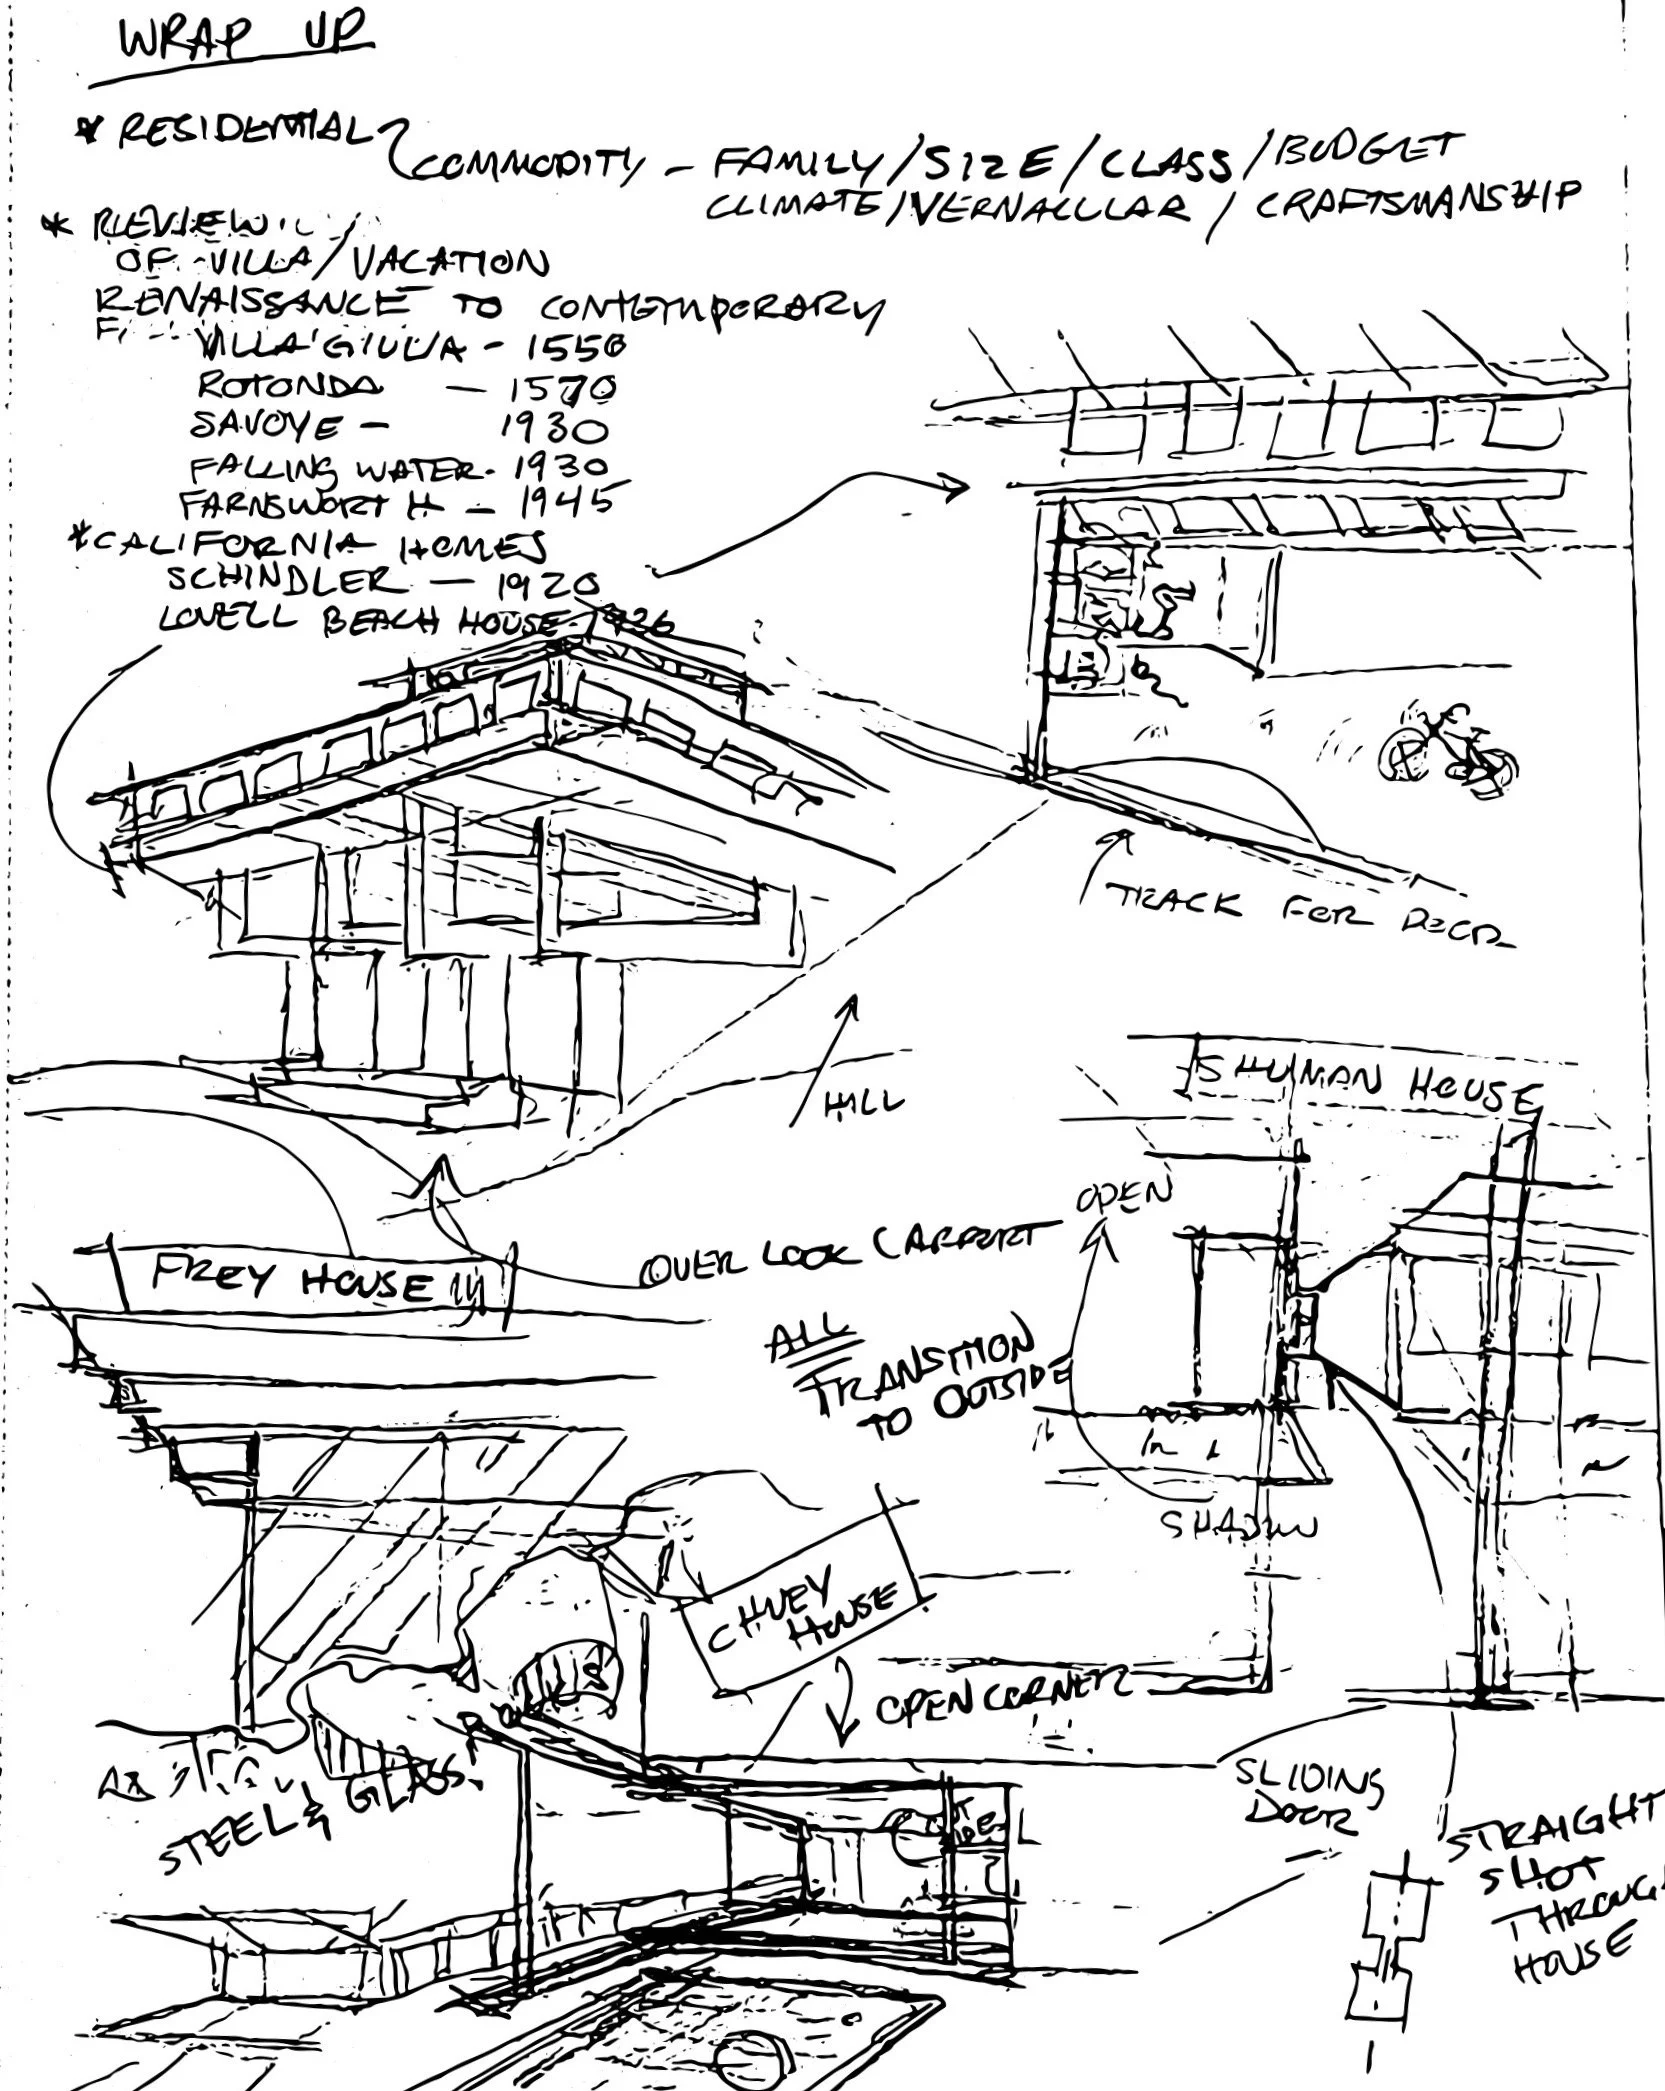 WRAP UP
* RESIDENTIAL
COMMODITY - FAMILY/SIZE/CLASS/BUDGET
CLIMATE/VERNACULAR/CRAFTSMANSHIP
* REVIEW
OF VILLA/VACATION
RENAISSANCE TO CONTEMPORARY
VILLA GIULIA - 1550
ROTONDA - 1570
SAVOYE - 1930
FALLING WATER - 1930
FARNSWORTH - 1945
* CALIFORNIA HOMES
SCHINDLER - 1920
LOVELL BEACH HOUSE - 1926
TRACK FOR DOOR
HILL
SHUMAN HOUSE
OPEN
OVER LOOK CARPORT
FREY HOUSE
ALL
TRANSITION
TO OUTSIDE
SHADOW
CHUEY
HOUSE
OPEN CORNER
STEEL & GLASS
SLIDING
DOOR
STRAIGHT
SHOT
THROUGH
HOUSE